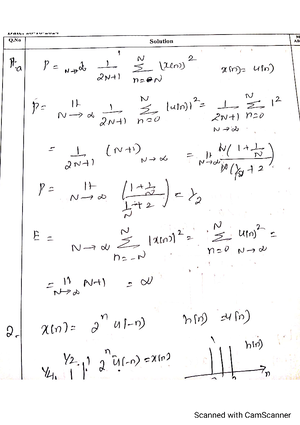 Q.No Solution
P = N→∞ 1/2N+1 N∑n=-N |x(n)|² x(n) = u(n)
P = lt N→∞ 1/2N+1 N∑n=0 |u(n)|² = 1/2N+1 N∑n=0 1² N→∞
= 1/2N+1 (N+1) N→∞ = lt N→∞ N(1+1/N)
P = lt N→∞ (1+1/N / 1/N+2) = 1/2
E = N→∞ N∑n=-N |x(n)|² = N∑n=0 u(n)² = N→∞
= lt N→∞ N+1 = ∞
2. x(n) = 2ⁿ u(-n) h(n) = u(n)
1/2 1 2ⁿ u(-n) = x(n) h(n)
1/4 n
Scanned with CamScanner